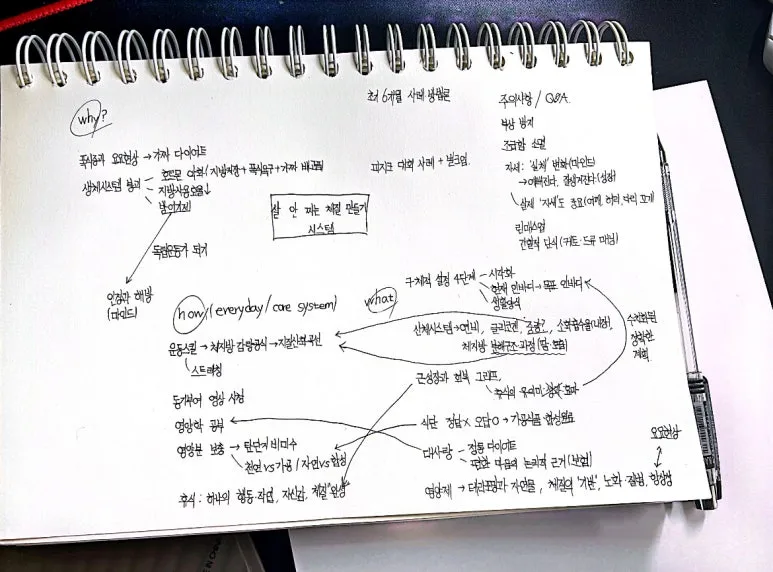 why?
폭식증과 요요현상 → 가짜 다이어트
생체시스템 붕괴 호르몬 약화(지방저장+폭식욕구+가짜 배고픔
지방사용효율↓
방어기제
독립운동가 되기
인정과 해방
(마인드)
초저 6개월 사례 방법론
피지크 대회 사례 + 벌크업
살 안 찌는 체질 만들기
시스템
주의사항 / Q&A
부상 방지
조급함 소멸
자세: '실체' 변화(마인드)
→ 예뻐진다, 잘생겨진다(성형)
실제 '자세'도 중요(어깨, 허리, 다리 꼬기
린매스업
간헐적 단식
how/(everyday/care system)
운동스킬 → 체지방 감량공식 → 지질산화곡선
스트레칭
동기부여 영상 시청
영양학 공부
영양분 보충 → 탄단지비미수
천연vs가공/자연vs합성
휴식: 하나의 행동·작업, 자신감, 체질 완성
what
구체적 설정 4단계 시각화
현재 인바디 → 목표 인바디
생활방식
신체시스템 → 연비, 글리코겐, 호르몬?, 소화흡수율(내장),
체지방 분해구조·과정(땀·호흡)
근성장과 회복 그래프,
휴식의 유의미·생략 효과
수치화된
정확한
계획
식단 정답X 오답O → 가공식품·합성원료
대사량 - 정통 다이어트
편한 마음의 논리적 근거(보험)
영양제 → 테라포밍과 자연물, 체질의 '기반', 노화·질병, 항상성
요요현상